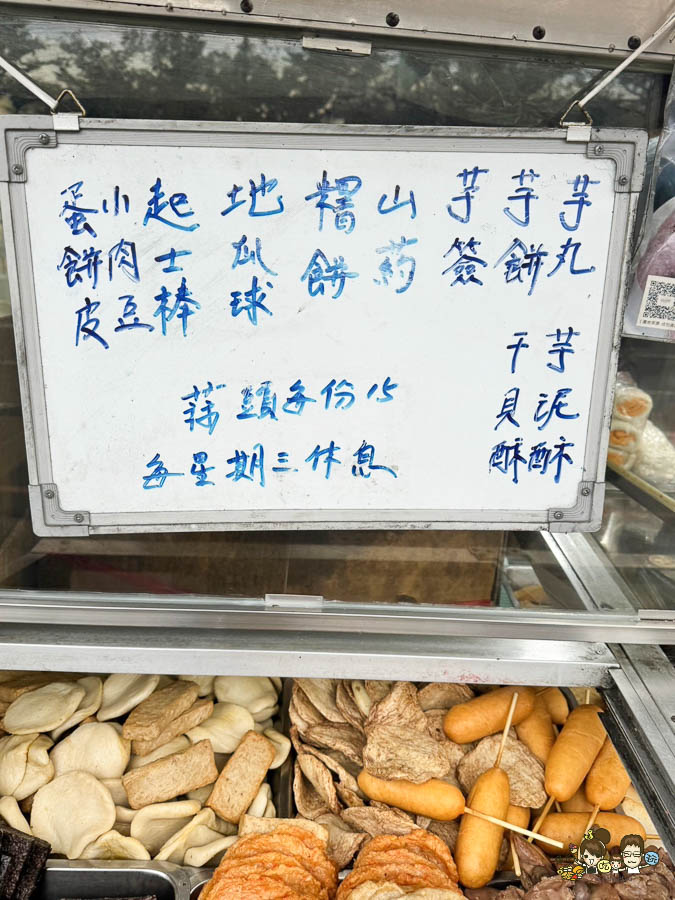 芋丸
芋餅
芋簽
山药
糬餅
地瓜球
起士棒
小肉豆
蛋餅皮
芋泥酥
干貝酥
蒜頭每份15
每星期三休息